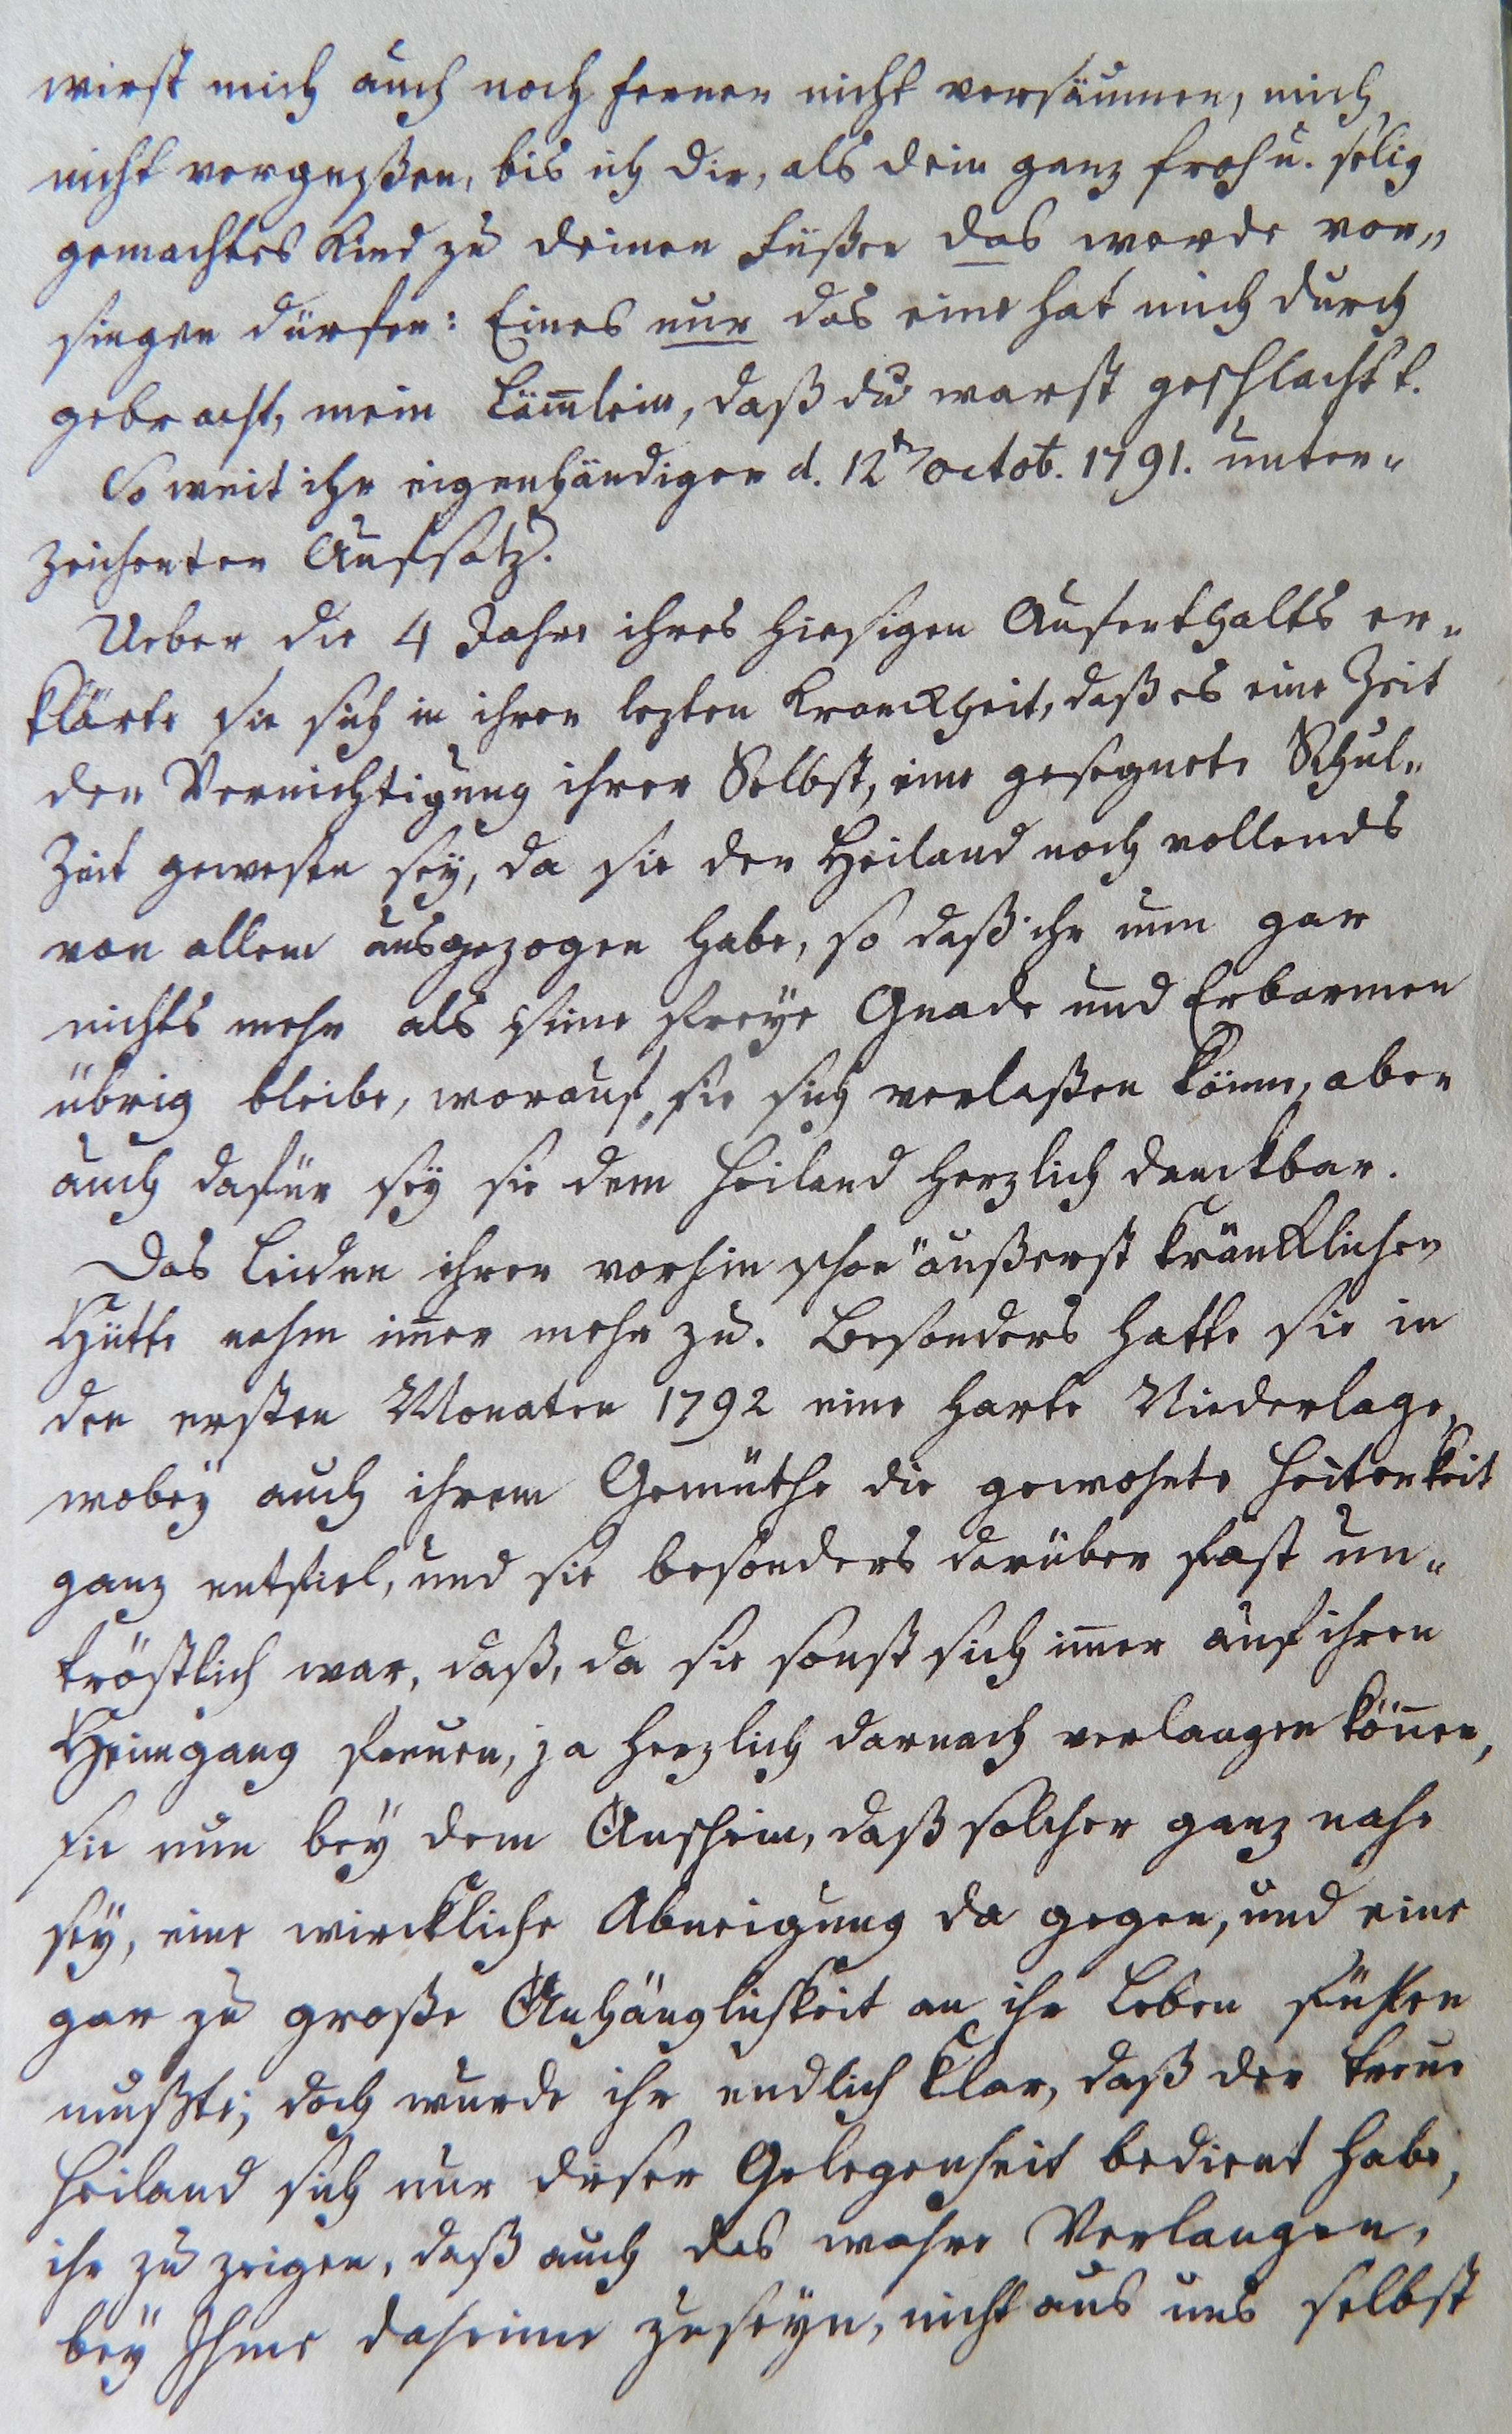 wirst mich auch noch ferner nicht versäumen, mich
nicht vergeßen, bis ich dir, als dein ganz froh u. selig
gemachtes Kind zu deinen Füßen das werde vor„
singen dürfen: Eines nur das eine hat mich durch
gebracht, mein Läm̄lein, daß du warst geschlacht't.
So weit ihr eigenhändiger d. 12ten octob. 1791. unter„
zeichenter Aufsatz.
Ueber die 4 Jahre ihres hiesigen Aufenthalts er„
klärte sie sich in ihrer lezten Kranckheit, daß es eine Zeit
der Vernichtigung ihrer Selbst, eine gesegnete Schul„
Zeit gewesen sey, da sie der Heiland noch vollends
von allem ausgezogen habe, so daß ihr nun gar
nichts mehr als seine freÿe Gnade und Erbarmen
übrig bleibe, worauf sie sich verlaßen könne, aber
auch dafür seÿ sie dem Heiland herzlich danckbar.
Das Leiden ihrer vorhin schon äußerst kräncklichen
Hütte nahm im̄er mehr zu. Besonders hatte sie in
den ersten Monaten 1792 eine harte Niederlage,
wobeÿ auch ihrem Gemüthe die gewohnte Heiterkeit
ganz entfiel, und sie besonders darüber fast un„
tröstlich war, daß, da sie sonst sich im̄er auf ihren
Heimgang freuen, ja herzlich darnach verlangen kön̄en,
sie nun beÿ dem Anschein, daß solcher ganz nahe
seÿ, eine wirckliche Abneigung da gegen, und eine
gar zu große Anhänglichkeit an ihr Leben fühlen
mußte; doch wurde ihr endlich klar, daß der treue
Heiland sich nur dieser Gelegenheit bedient habe,
ihr zu zeigen, daß auch das wahre Verlangen,
beÿ Ihme daheime zu seÿn, nicht aus uns selbst